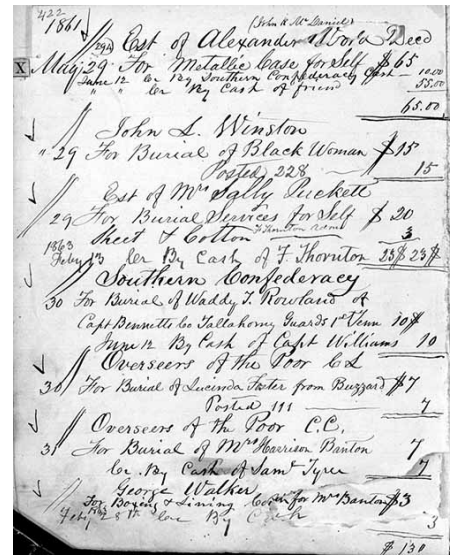 422
(John R McDaniel)
1861 29th Est of Alexander Word Decd
X May 29 For Metallic Case for Self $65
June 12 Cr By Southern Confederacy Cash 10.00
" " Cr By Cash of friend 55.00
65.00
John L. Winston
" 29 For Burial of Black Woman $15
Posted 228 15
Est of Mrs Sally Puckett
29 For Burial Services for Self $20
Sheet & Cotton F Thornton 3
1863
Feby 13 Cr By Cash of F. Thornton 23 $ 23 $
Southern Confederacy
30 For Burial of Waddy T. Rowland of
Capt Bennetts Co Tallahorny Guards 1st Tenn 10$
June 12 By Cash of Capt Williams 10
Overseers of the Poor C L
30 For Burial of Lucinda Foster from Buzzard $7
Posted 111 7
Overseers of the Poor C.C.
31 For Burial of Mrs Harrison Banton 7
Cr. By Cash of Saml Tyree 7
George Walker
31 For Boxing & Lining Coffin for Mrs Banton $3
Feby 28th Cr By Cash
3
$130